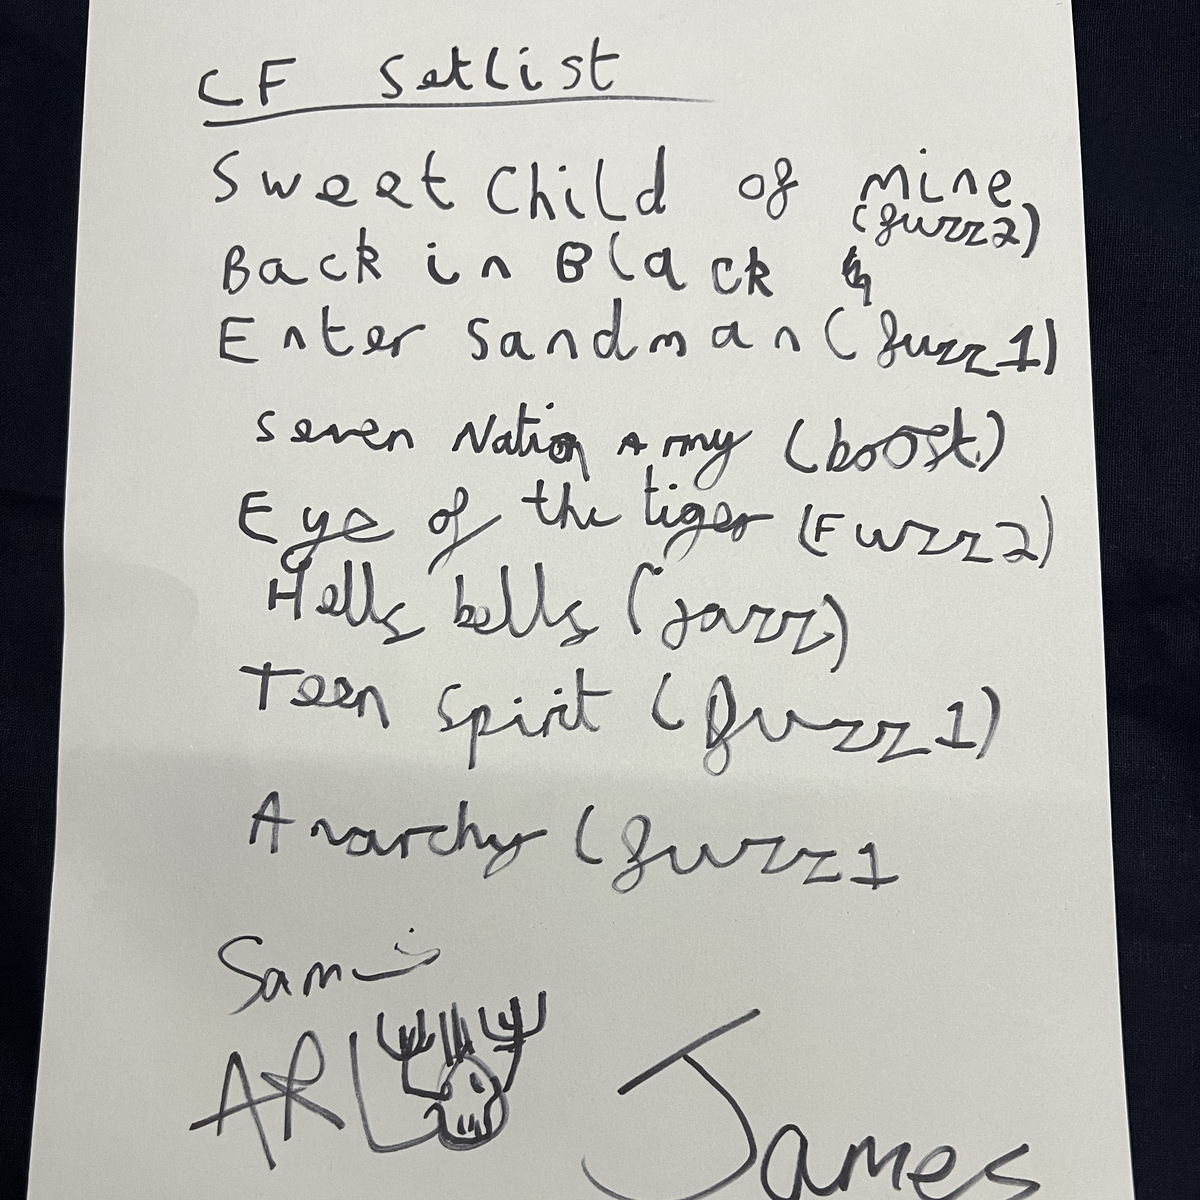 CF Setlist
Sweet Child of mine
(fuzz2)
Back in Black
Enter Sandman (fuzz1)
Seven Nation Army (boost)
Eye of the tiger (Fuzz2)
Hells bells (jazz)
Teen Spirit (fuzz1)
Anarchy (fuzz1
Sam
ARLO
James